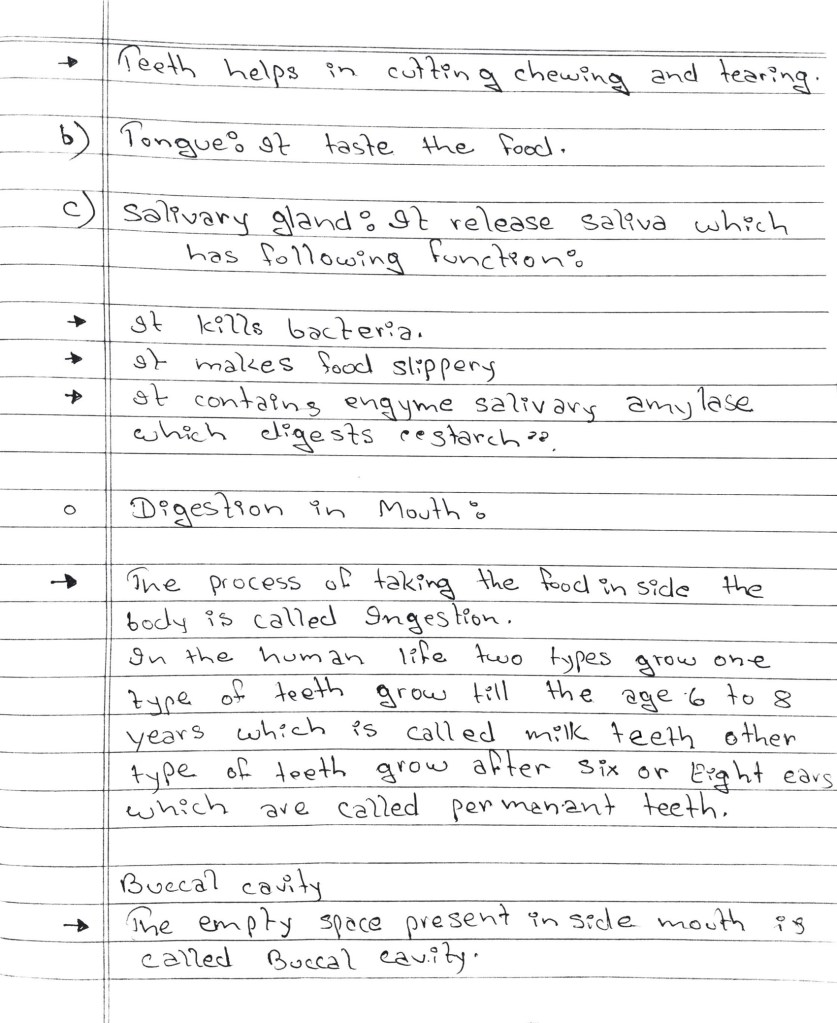 → Teeth helps in cutting chewing and tearing.
b) Tongue: It taste the food.
c) Salivary gland: It release saliva which
has following function:
→ It kills bacteria.
→ It makes food slippery
→ It contains engyme salivary amylase
which digests "starch".
○ Digestion in Mouth:
→ The process of taking the food in side the
body is called Ingestion.
In the human life two types grow one
type of teeth grow till the age 6 to 8
years which is called milk teeth other
type of teeth grow after six or Eight ears
which are called permenant teeth.
Buccal cavity
→ The empty space present in side mouth is
called Buccal cavity.